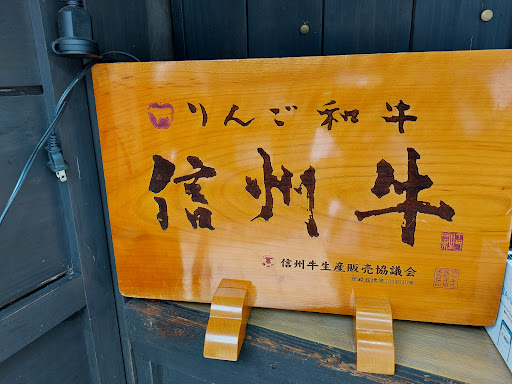 りんご和牛
信州牛
信州牛生産販売協議会